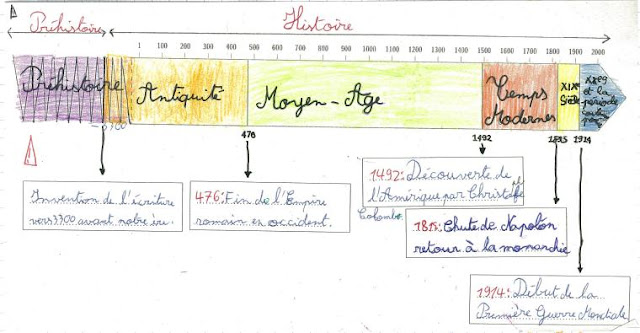 Préhistoire
Histoire
1 100 200 300 400 500 600 700 800 900 1000 1100 1200 1300 1400 1500 1600 1700 1800 1900 2000
Préhistoire
Antiquité
Moyen-Age
Temps
Modernes
XIXe
Siècle
et la
période
-3300
476
1492
1815
1914
Invention de l'écriture
vers 3300 avant notre ère.
476: Fin de l'Empire
romain en occident.
1492: Découverte de
l'Amérique par Christofe
Colombo
1815: Chute de Napoléon
retour à la monarchie
1914: Début de la
Première Guerre Mondiale